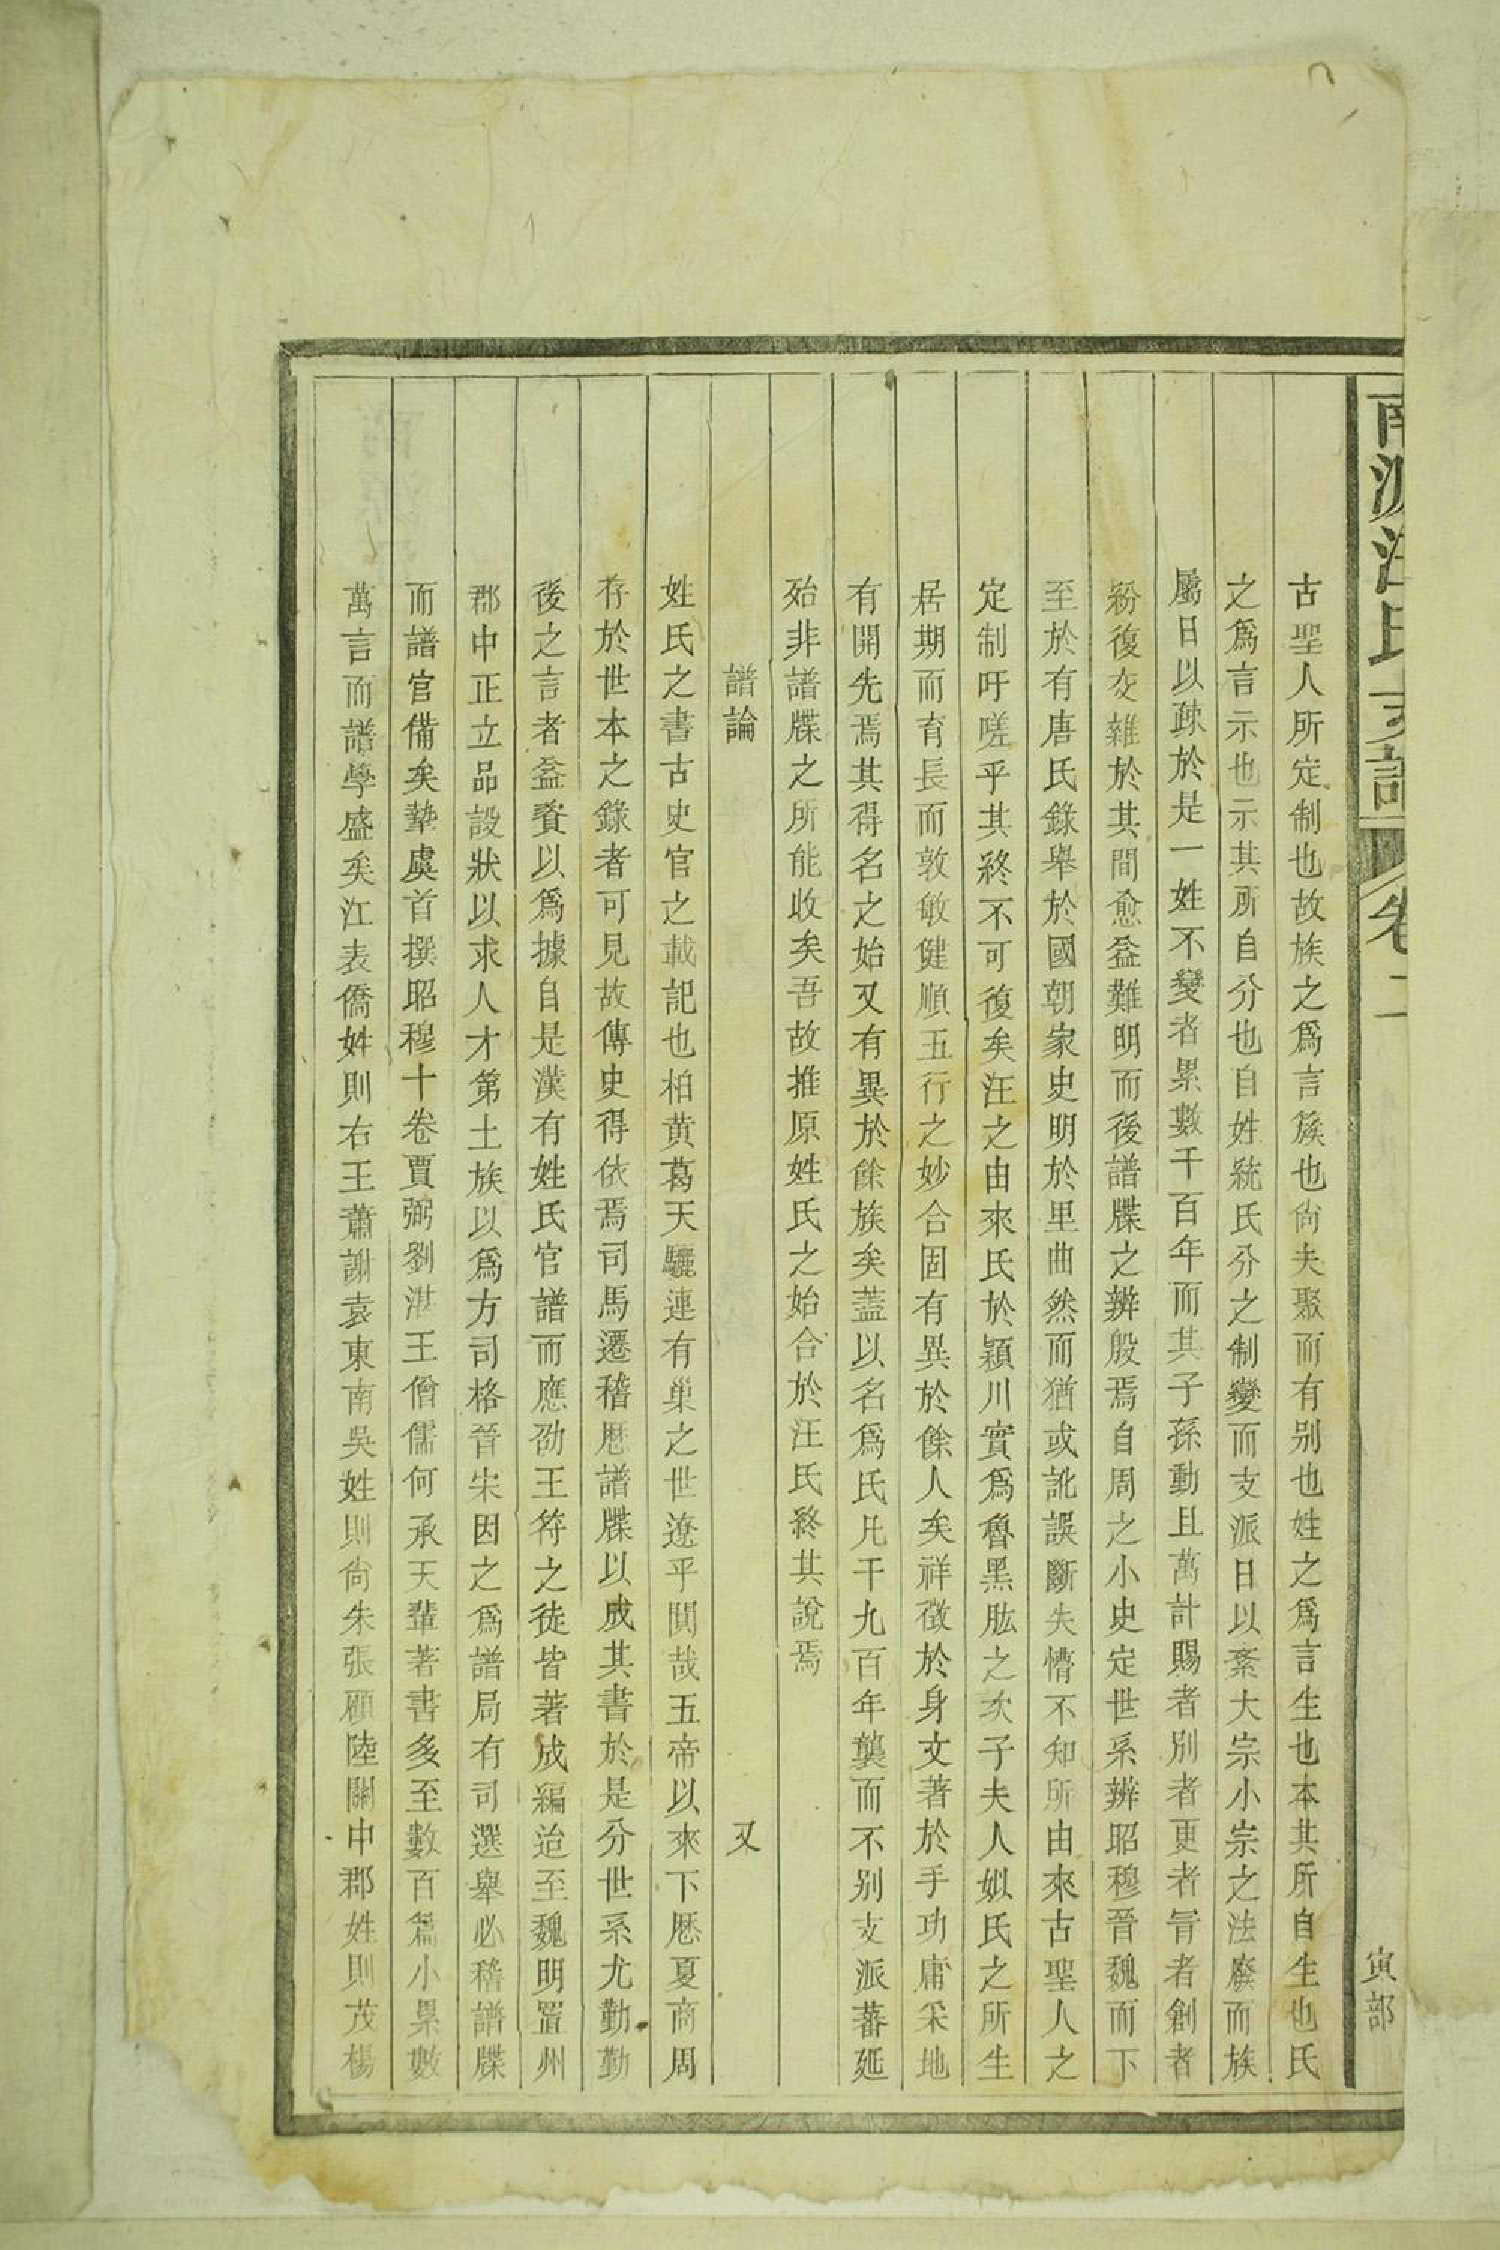 南源汪氏支譜 卷二 寅部
古聖人所定制也故族之爲言簇也尙夫聚而有别也姓之爲言生也本其所自生也氏
之爲言示也示其所自分也自姓統氏分之制變而支派日以紊大宗小宗之法廢而族
屬日以疎於是一姓不變者累數千百年而其子孫動且萬計賜者别者更者冐者創者
紛復交雜於其間愈益難明而後譜牒之辨殷焉自周之小史定世系辨昭穆晉魏而下
至於有唐氏錄舉於國朝家史明於里曲然而猶或訛誤斷失懵不知所由來古聖人之
定制吁嗟乎其終不可復矣汪之由來氏於潁川實爲魯黑肱之次子夫人姒氏之所生
居期而育長而敦敏健順五行之妙合固有異於餘人矣祥徵於身文著於手功庸采地
有開先焉其得名之始又有異於餘族矣蓋以名爲氏凡千九百年龔而不别支派蕃延
殆非譜牒之所能收矣吾故推原姓氏之始合於汪氏終其說焉
譜論 又
姓氏之書古史官之載記也柏黃葛天驪連有巢之世遼乎閴哉五帝以來下厯夏商周
存於世本之錄者可見故傳史得依焉司馬遷稽厯譜牒以成其書於是分世系尤勤勤
後之言者益賚以爲據自是漢有姓氏官譜而應劭王符之徒皆著成編迨至魏明置州
郡中正立品設狀以求人才第士族以爲方司格晉宋因之爲譜局有司選舉必稽譜牒
而譜官備矣摯虞首撰昭穆十卷賈弼劉湛王僧儒何承天輩著書多至數百篇小累數
萬言而譜學盛矣江表僑姓則右王蕭謝袁東南吳姓則尙朱張顧陸關中郡姓則茂楊